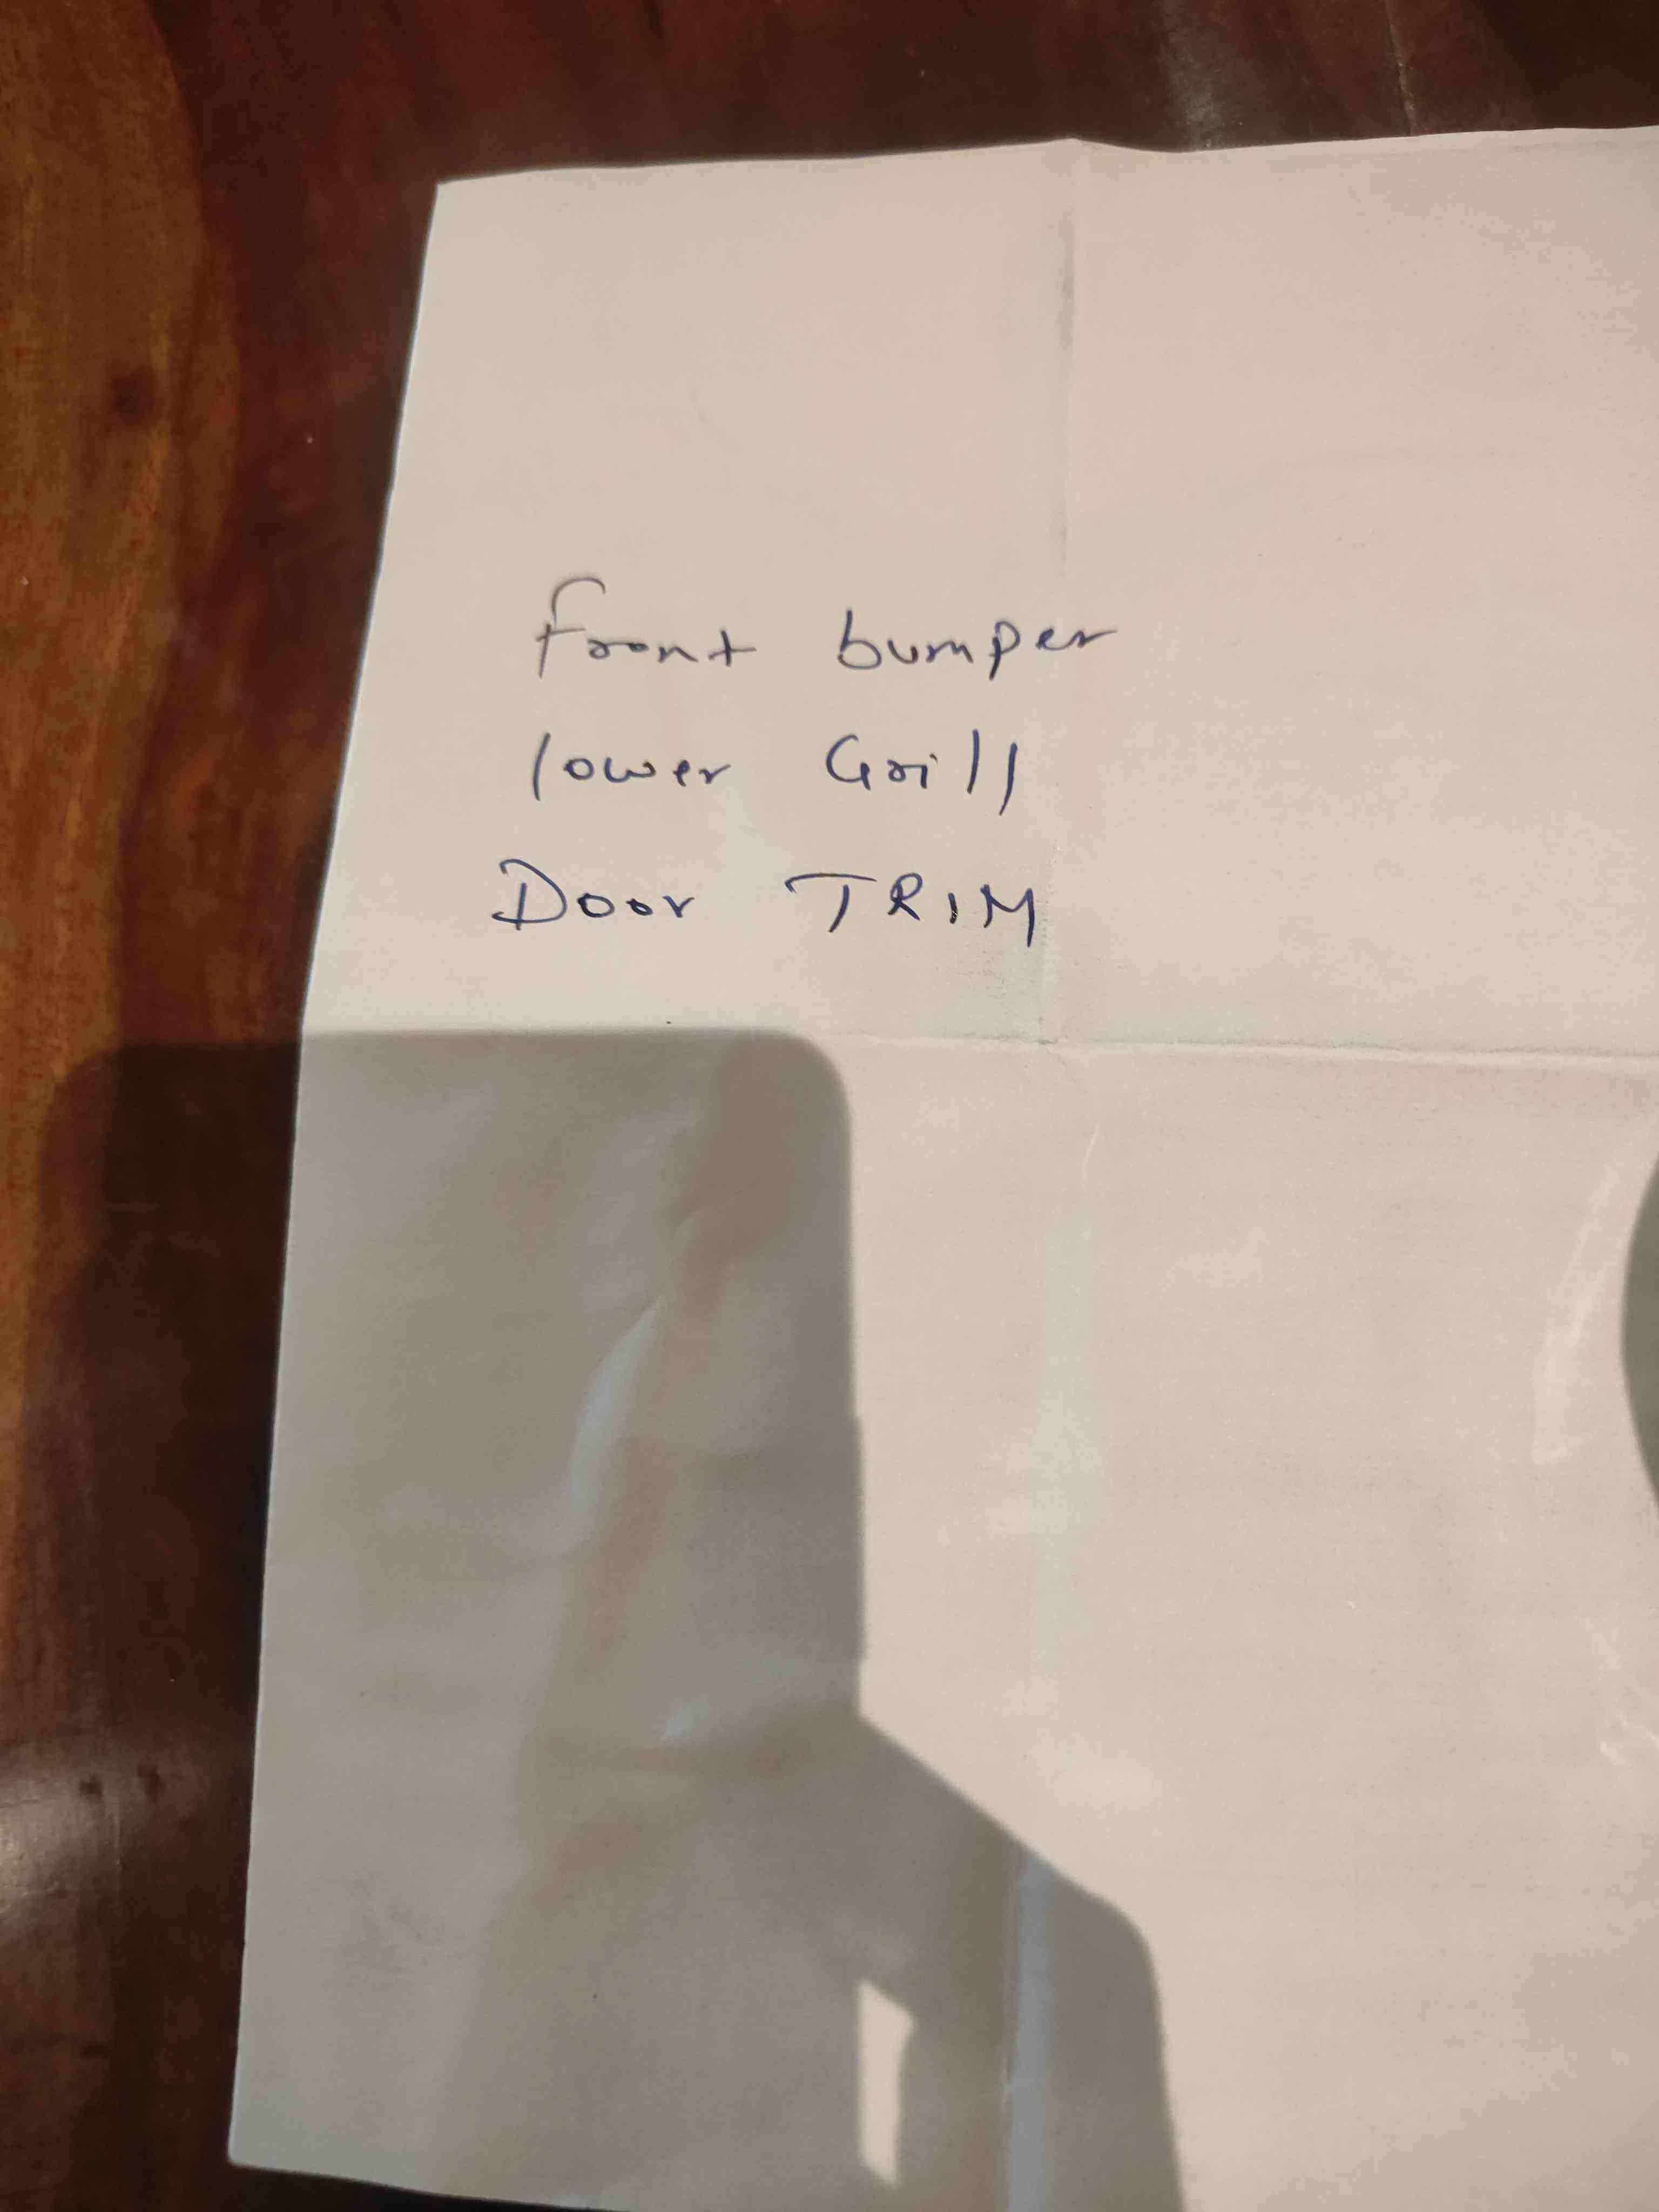 front bumper
lower Grill
Door TRIM